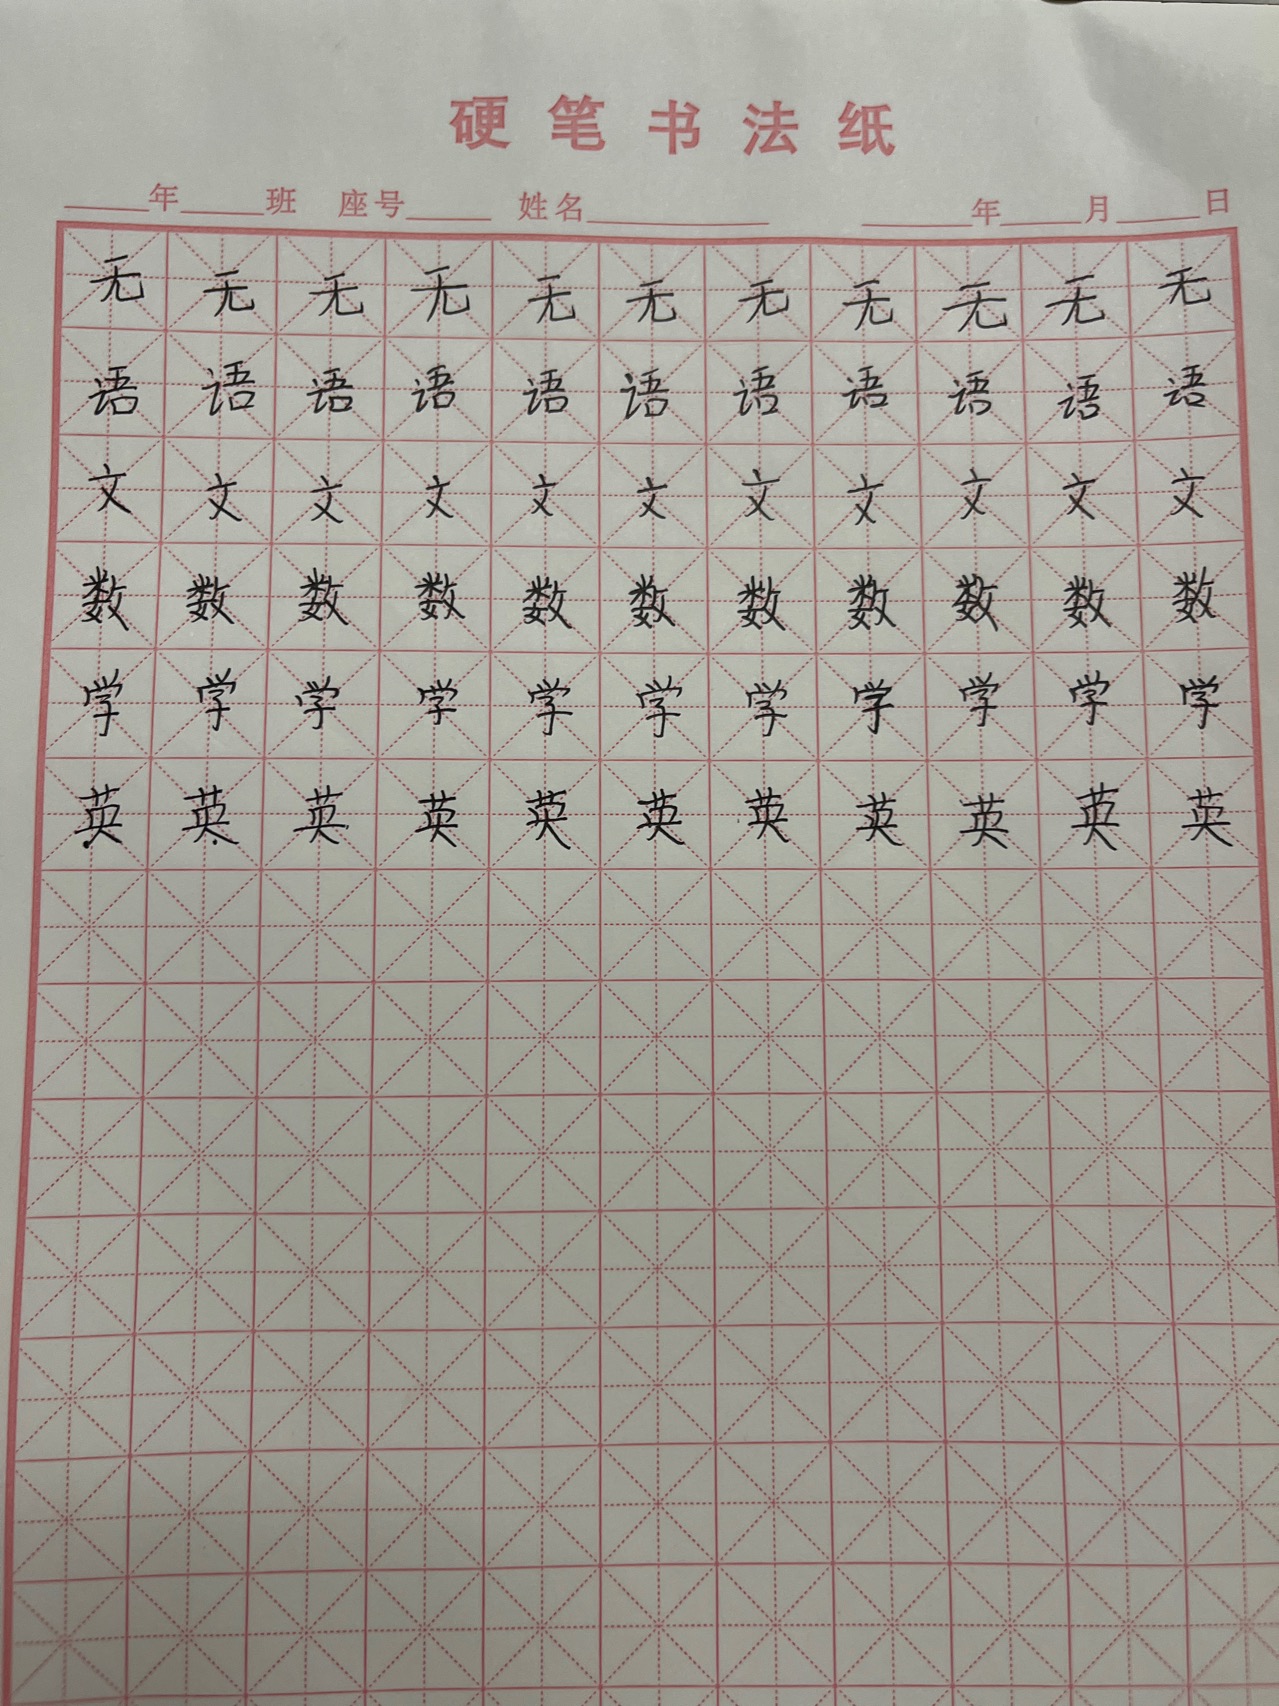 硬笔书法纸
年 班 座号 姓名 年 月 日
无无无无无无无无无无无
语语语语语语语语语语语
文文文文文文文文文文文
数数数数数数数数数数数
学学学学学学学学学学学
英英英英英英英英英英英